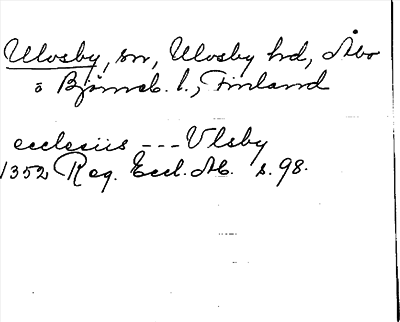 Ulvsby, sn, Ulvsby hd, Åbo
o Björneb. l., Finland
ecclesiis --- Vlsby
1352 Reg. Eccl. Ab. s. 98.